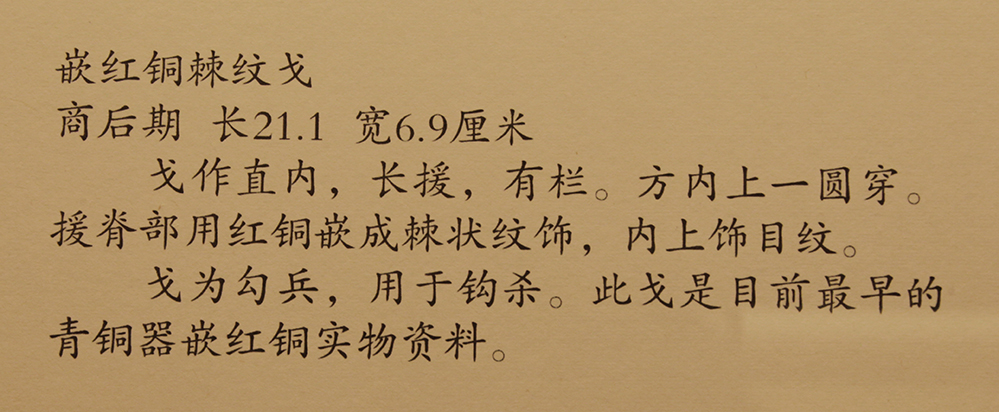 嵌红铜棘纹戈
商后期 长21.1 宽6.9厘米
戈作直内，长援，有栏。方内上一圆穿。
援脊部用红铜嵌成棘状纹饰，内上饰目纹。
戈为勾兵，用于钩杀。此戈是目前最早的
青铜器嵌红铜实物资料。